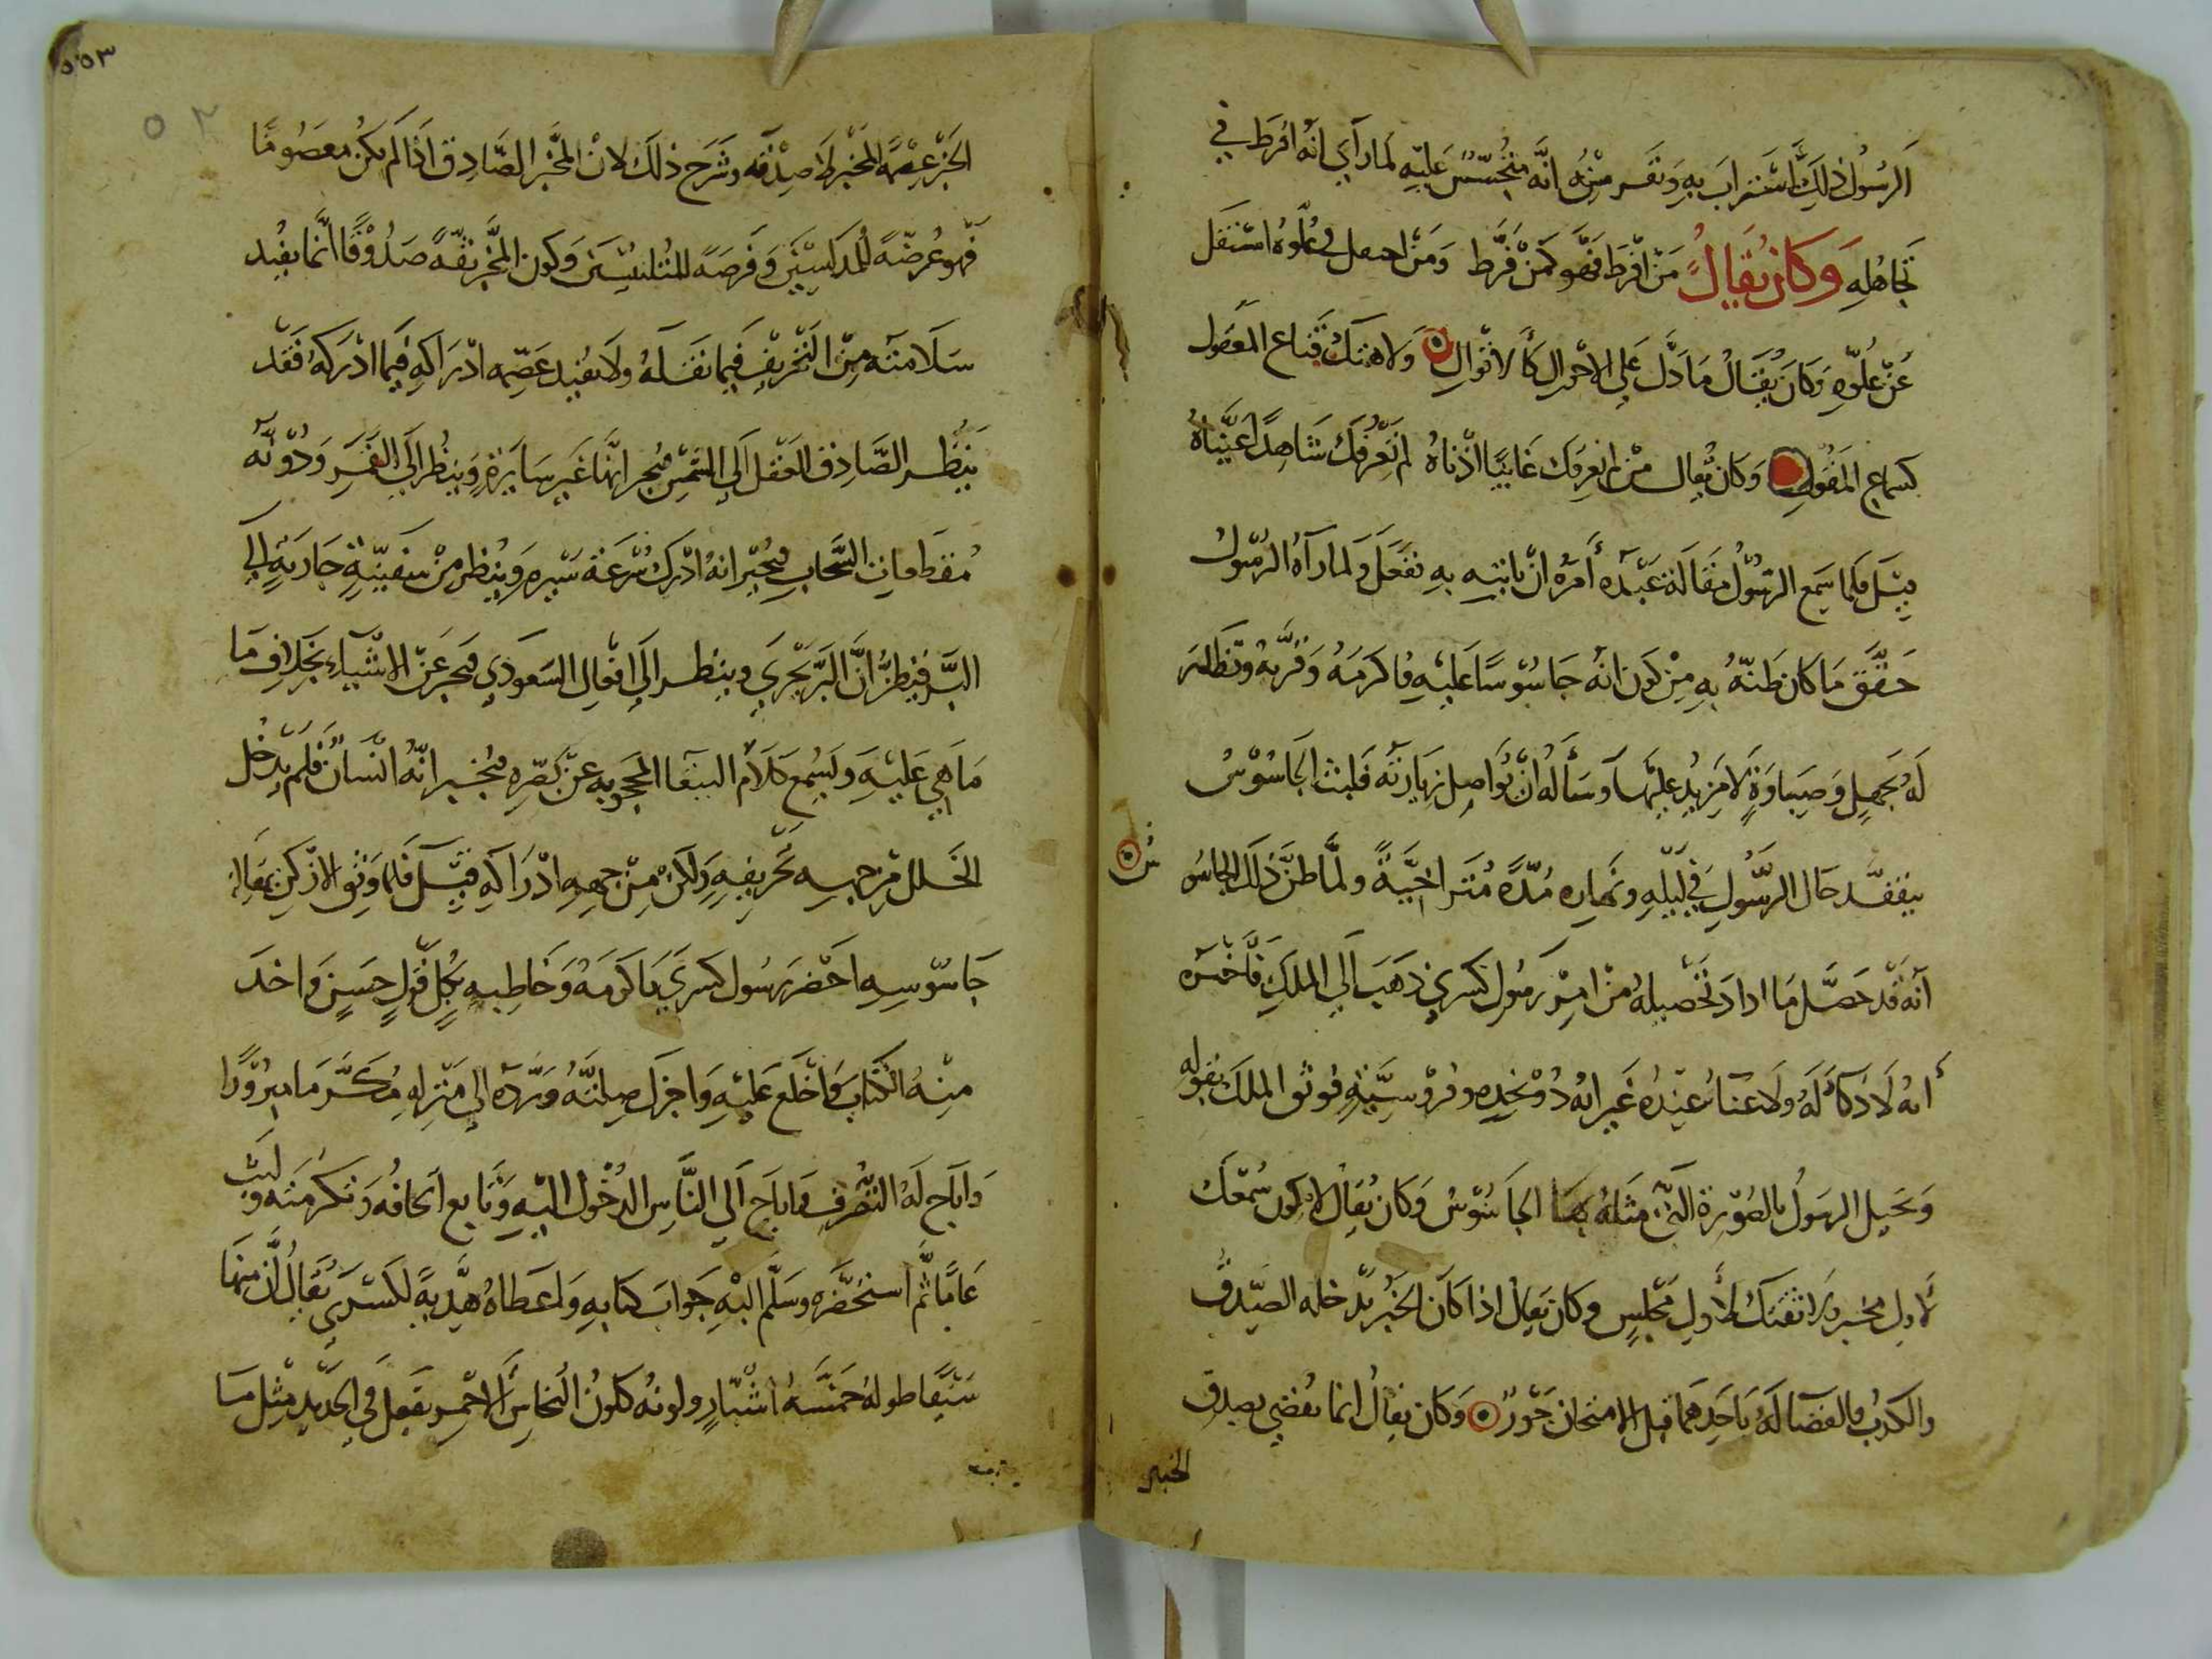 الرسول ذلك استراب به وتفرس منه انه متجسس عليه لما رآي انه افرط في
تجاهله وكان يقال من افرط فهو كمن فرط ومن في علوه استنفل
عن علوه وكان يقال ما دل علي الاحوال كالاقوال ولا هتك قناع العقول
كسماع المقول وكان يقال من لم تعرفك غايبا اذناه لم تعرفك شاهدا عيناه
قيل فلما سمع الرسول مقالة عبده أمره ان ياتيه به ففعل ولما رآه الرسول
حقق ما كان ظنه به من كون انه جاسوسا عليه فاكرمه وقربه وتظاهر
له بجهل وصباوة لا مزيد عليها وسأله ان يواصل زيارته فلبث الجاسوس
يتفقد حال الرسول في ليله ونهاره مدة متراخية ولما ظن ذلك الجاسوس
آنه قد حصل ما اراد تحصيله من امر رسول كسري ذهب الي الملك فاخبره
أنه لا ذكاء له ولا غناء عنده غير انه ذو نجده وفروسية فوثق الملك بقوله
وتخيل الرسول بالصورة التي مثله بها الجاسوس وكان يقال لا يكون سمعك
لاول مخبر ولا ثقتك لأول مجلس وكان يقال اذا كان الخبر يدخله الصدق
والكذب فالقضآ له باحدهما قبل الامتحان جور وكان يقال انما يقضي بصدق
الخبر
٥٣
الخبر عصمة المخبر لا صدقه وشرح ذلك لان المخبر الصادق اذا لم يكن معصوما
فهو عرضة للمدلسين وفرصة للمتلبسين وكون المخبر ثقة صدوقا انما يفيد
سلامته من التحريف فيما نقله ولا يفيد عصمة ادراكه فيما ادركه فقد
ينظر الصادق العقل الي الشمس فيخبر انها غير سايرة وينظر الي القمر ودونه
مقطعات السحاب فيخبر انه ادرك سرعة سيره وينظر من سفينة جارية الي
البر فيظن ان البر يجري وينظر الي افعال السعودي فيخبر عن الاشياء بخلاف ما
ما هي عليه ويسمع كلام الببغا المحجوبه عن بصره فيخبر انه انسان فلم يدخل
الخلل من جهة تحريفه ولكن من جهة ادراكه قيل فلما وثق الازكن بمقالة
جاسوسه احضر رسول كسري فاكرمه وخاطبه بكل قول حسن واخذ
منه الكتاب واخلع عليه واجزل صلته ورده الي منزله مكرما مبرورا
واباح له التصرف واباح الي الناس الدخول اليه وتابع اتحافه وتكرمته ولبث
عاما ثم استحضره وسلم اليه جواب كتابه واعطاه هدية لكسري يقال ان منها
سيفا طوله خمسة اشبار ولونه كلون النحاس الاحمر يفعل في الحديد مثل ما